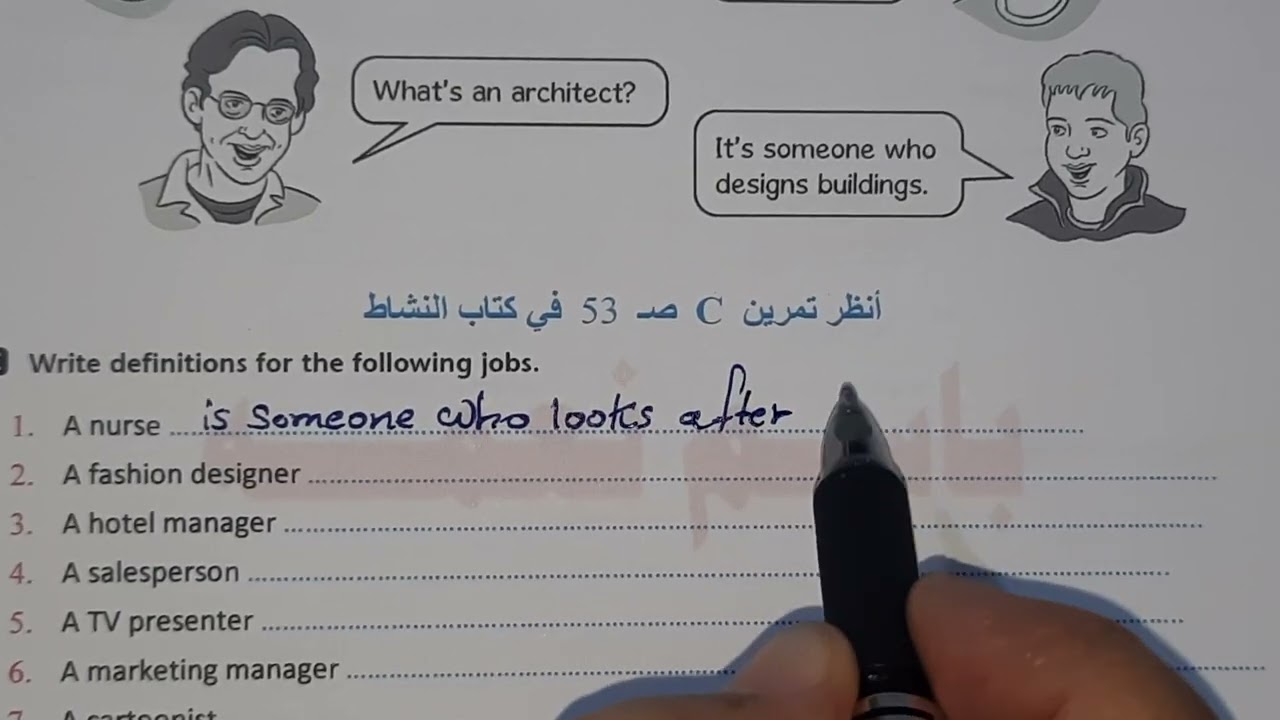 What's an architect?
It's someone who
designs buildings.
أنظر تمرين C صـ 53 في كتاب النشاط
Write definitions for the following jobs.
1. A nurse is someone who looks after
2. A fashion designer
3. A hotel manager
4. A salesperson
5. A TV presenter
6. A marketing manager
7. A cartoonist